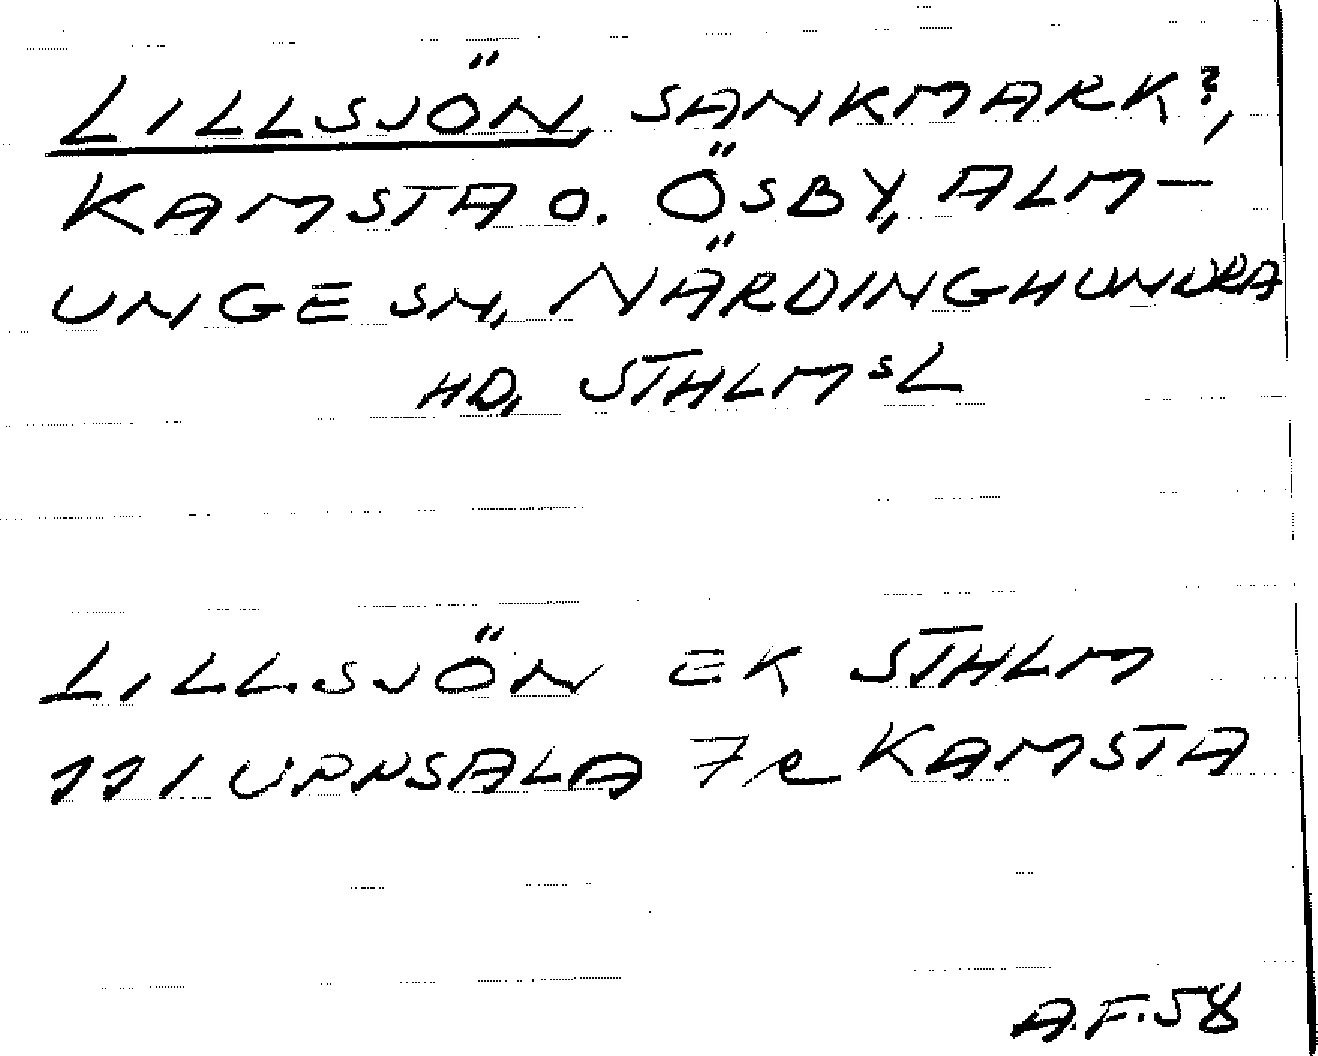 LILLSJÖN, SANKMARK?,
KAMSTA O. ÖSBY, ALM-
UNGE SN, NÄRDINGHUNDRA
HD, STHLMSL
LILLSJÖN EK STHLM
111 UPPSALA 7e KAMSTA
A.F.58